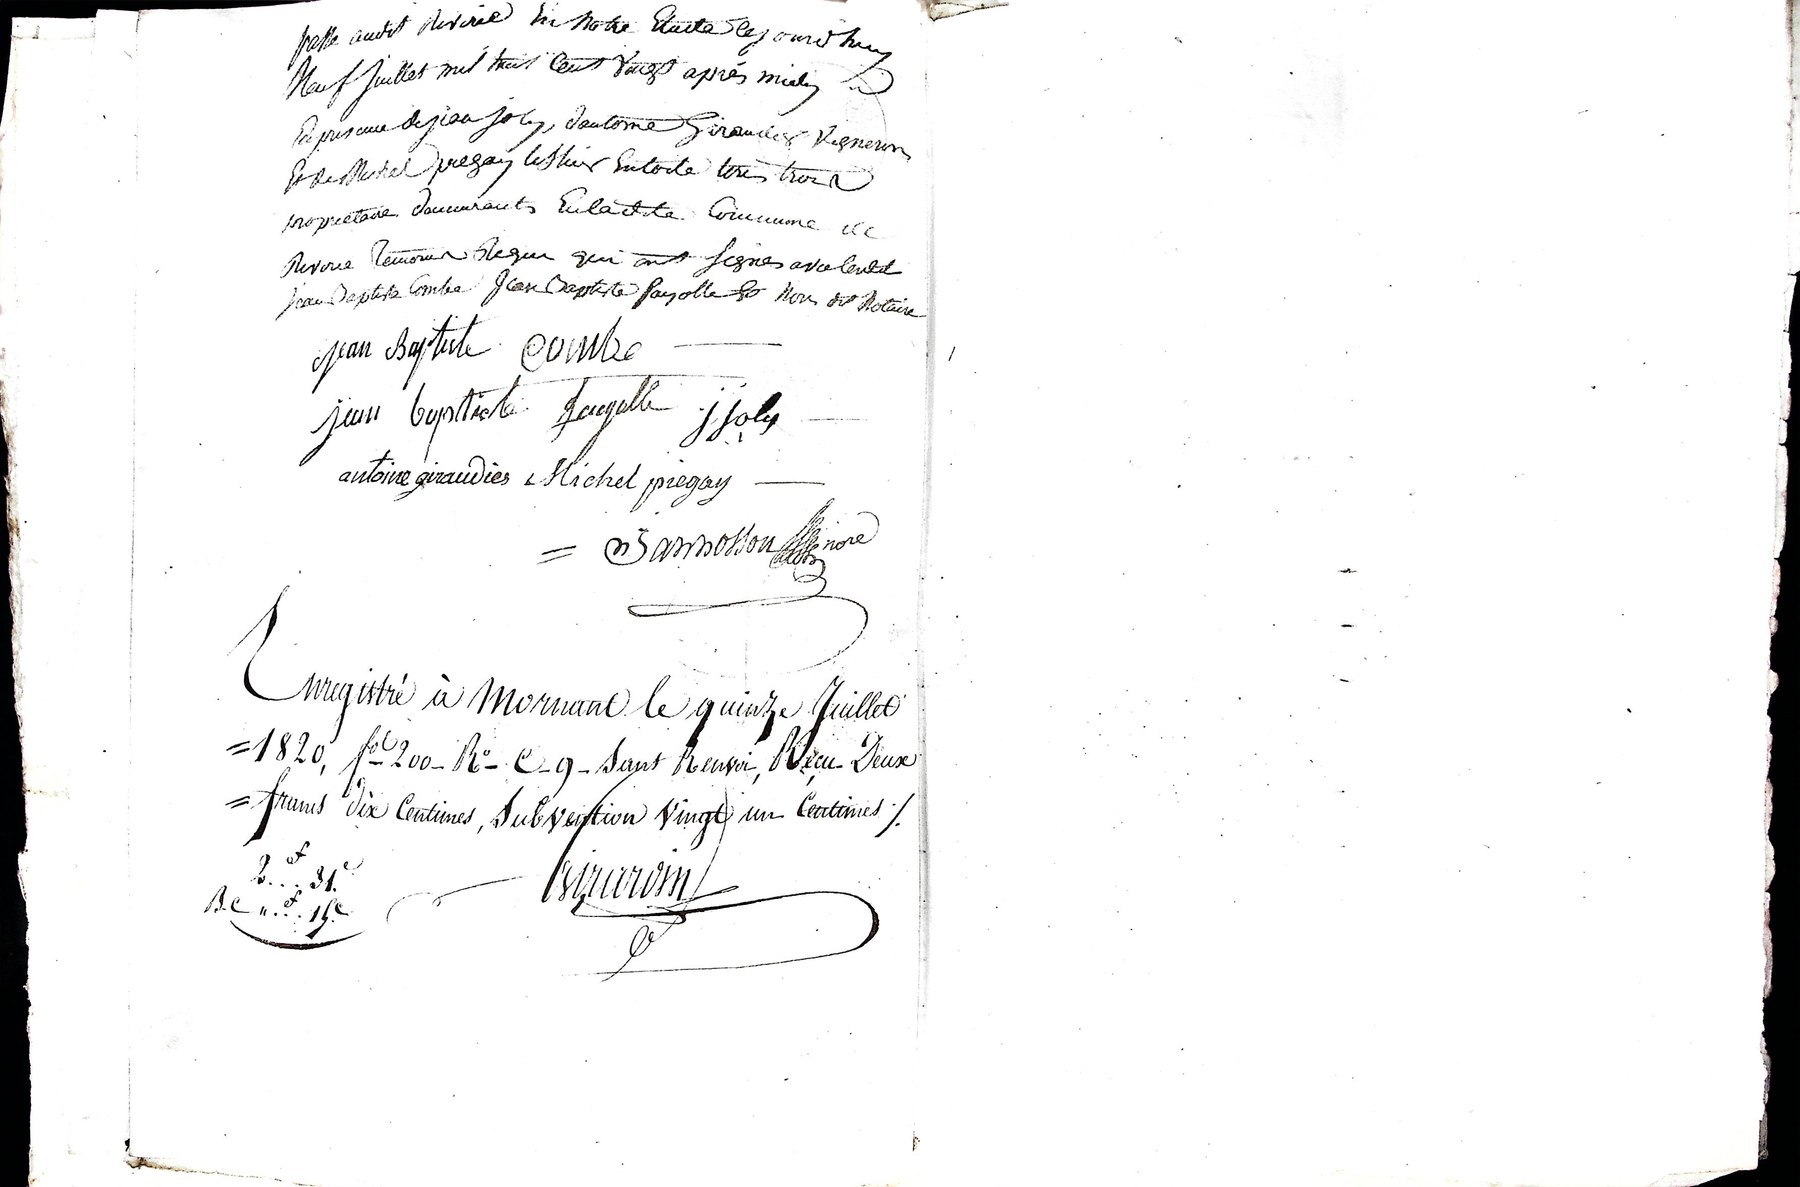 passé audit Riverie En Notre Etude Cejourd'huy
Neuf Juillet mil huit Cent Vingt après midy
En presence de jean joly, dantoine Giraudier Vigneron
Et de Michel pregay Entoile tous trois
propriétaire demeurants Enladite Commune de
Riverie Temoins Requis qui ont signés aveclesdt
jean Baptiste Combe Jean Baptiste fayolle Et Nous dt Notaire
jean Baptiste Combe
jean baptiste fayolle j joly
antoine giraudier Michel pregay
= nore
Enregistré à Mornant le quinze Juillet
= 1820, fol 200 - Ro - C - 9 - Sans Renvoi, Reçu Deux
= francs dix Centimes, Subvention Vingt un Centimes ./.
2.f.. 31.c
Girardin